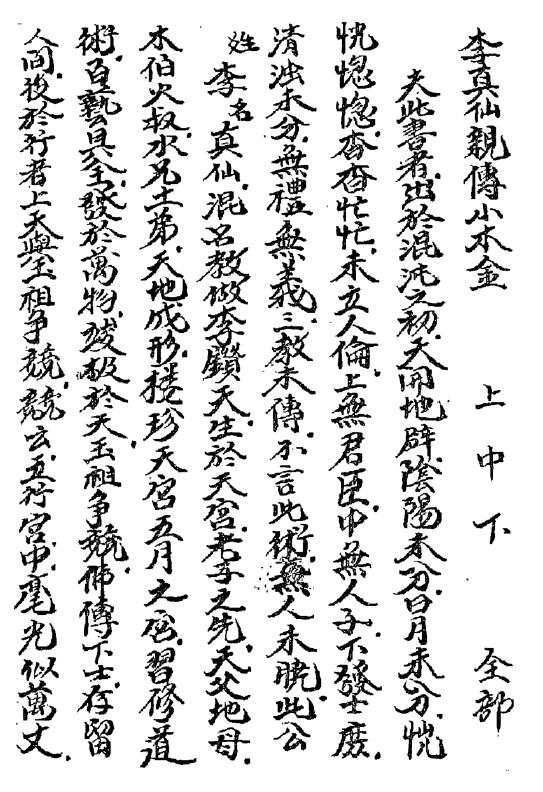 李真仙親傳小木金 上中下 全部
夫此書者出於混沌之初天開地辟陰陽未分日月未分恍
恍惚惚杳杳忙忙未立人倫上無君臣中無人子下發士庶
清浊未分無禮無義三教未傳不言此術無人未晓此公
姓李名真仙混名教做李鑽天生於天宮老子之先天父地母
木伯火叔水兄土弟天地成形楼珍天宮五月之宮習修道
術百藝具全發於萬物發极於天玉祖争競佛傳下士存留
人间後於行者上天與玉祖争競競云五行宮中毫光似萬丈